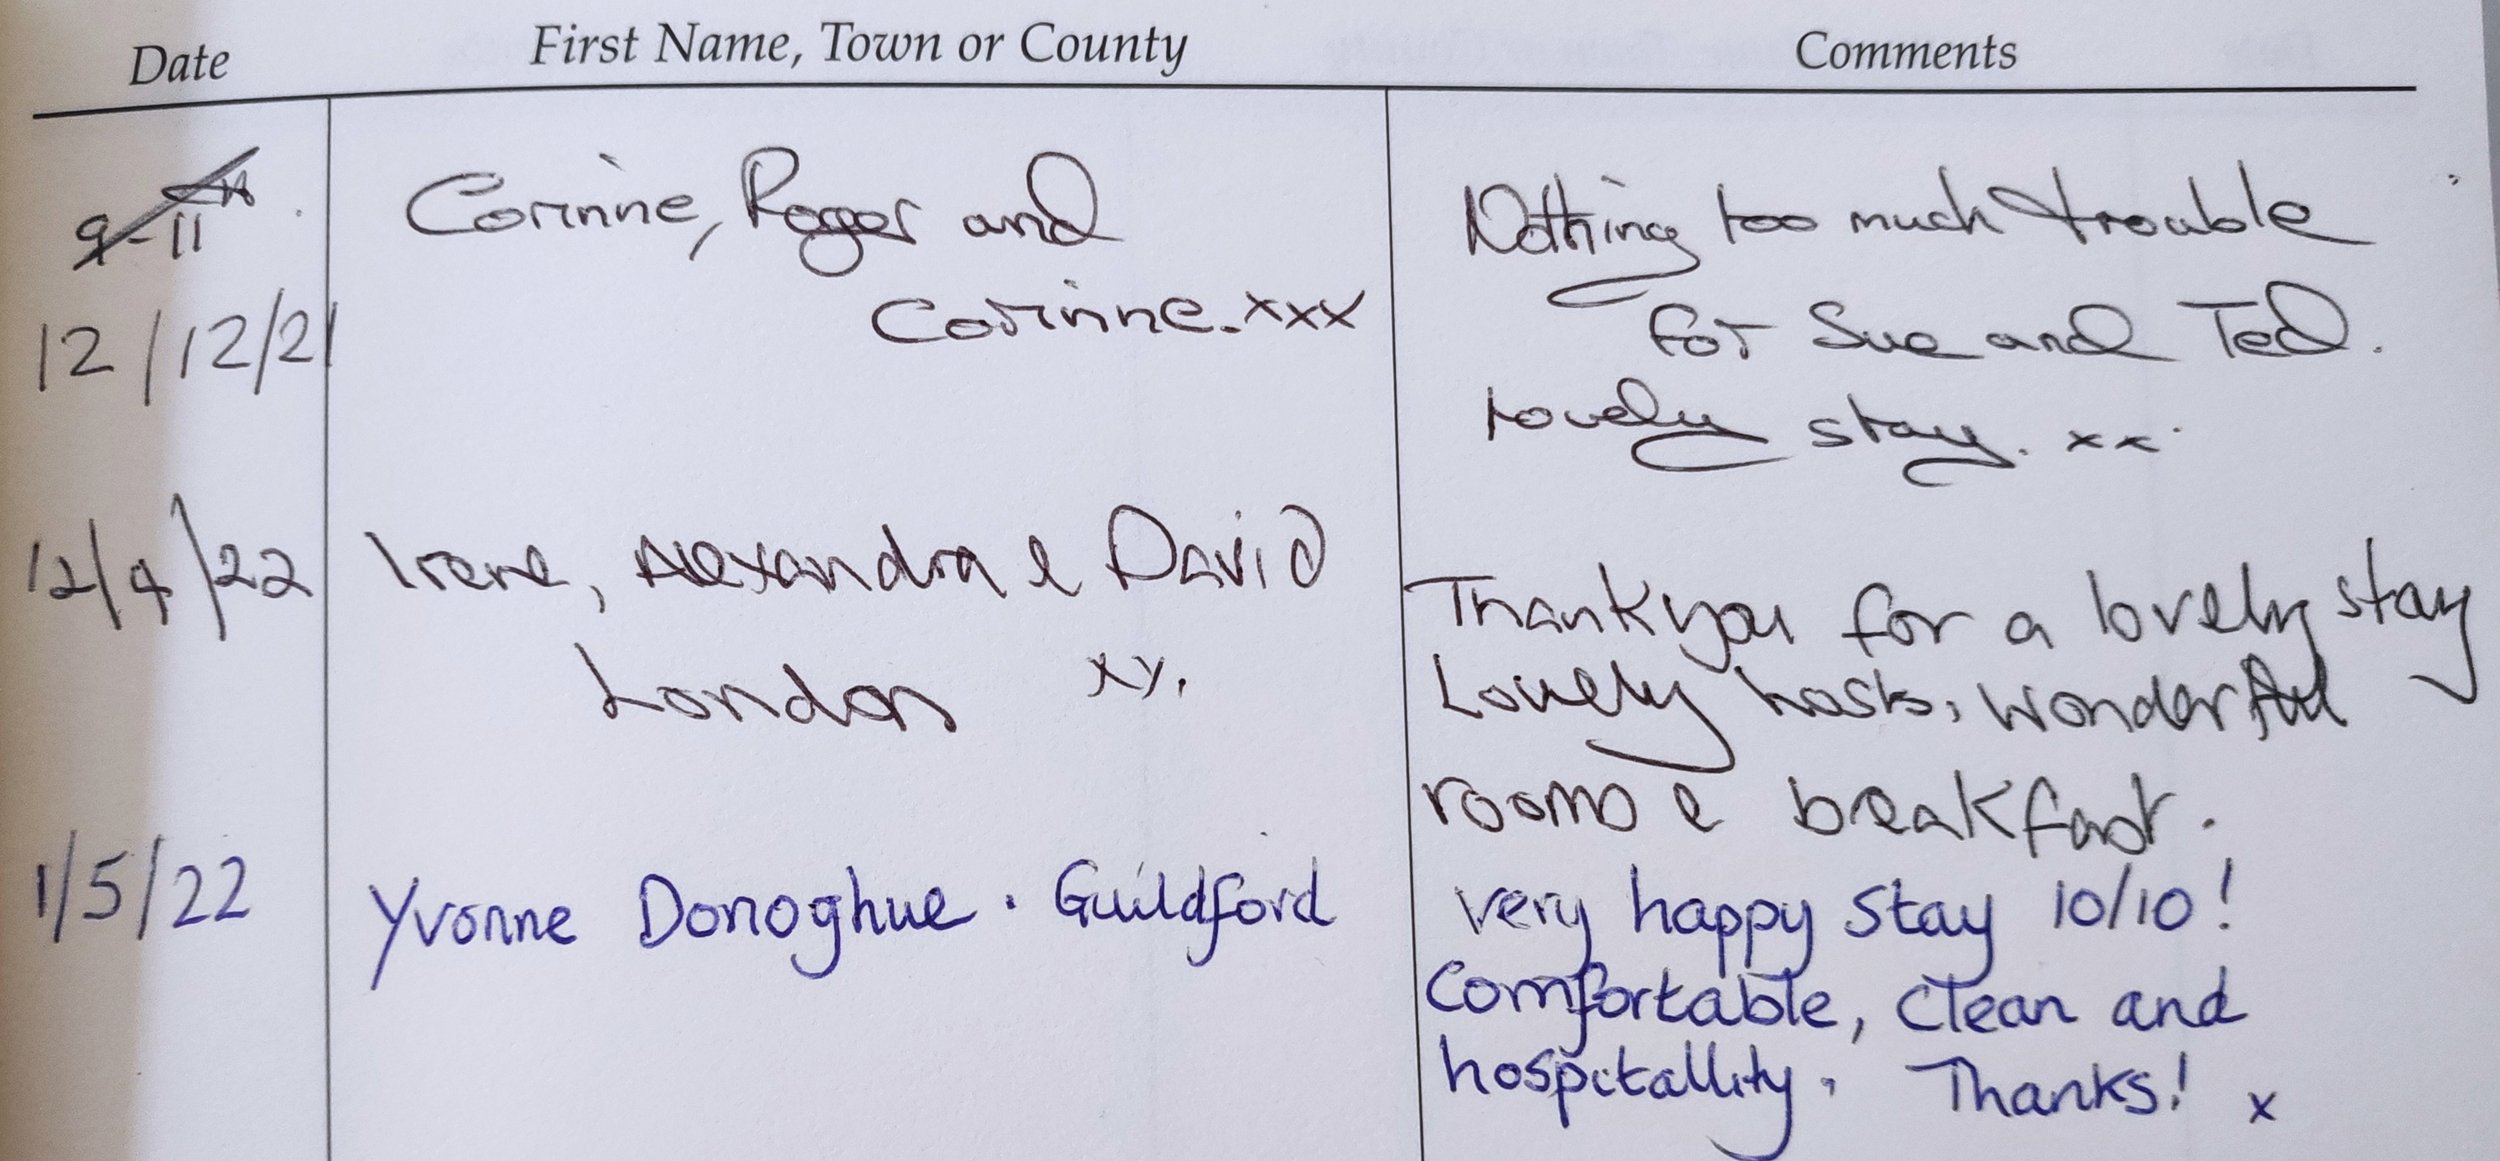 Date First Name, Town or County Comments
9-11
12/12/21
Corinne, Roger and
Corinne.xxx
Nothing too much trouble
for Sue and Ted.
Lovely stay. xx
12/4/22
Irene, Alexandra e David
London xx.
Thankyou for a lovely stay
Lovely hosts, wonderful
rooms e breakfast.
1/5/22
Yvonne Donoghue . Guildford
very happy stay 10/10!
Comfortable, clean and
hospitallity. Thanks! x